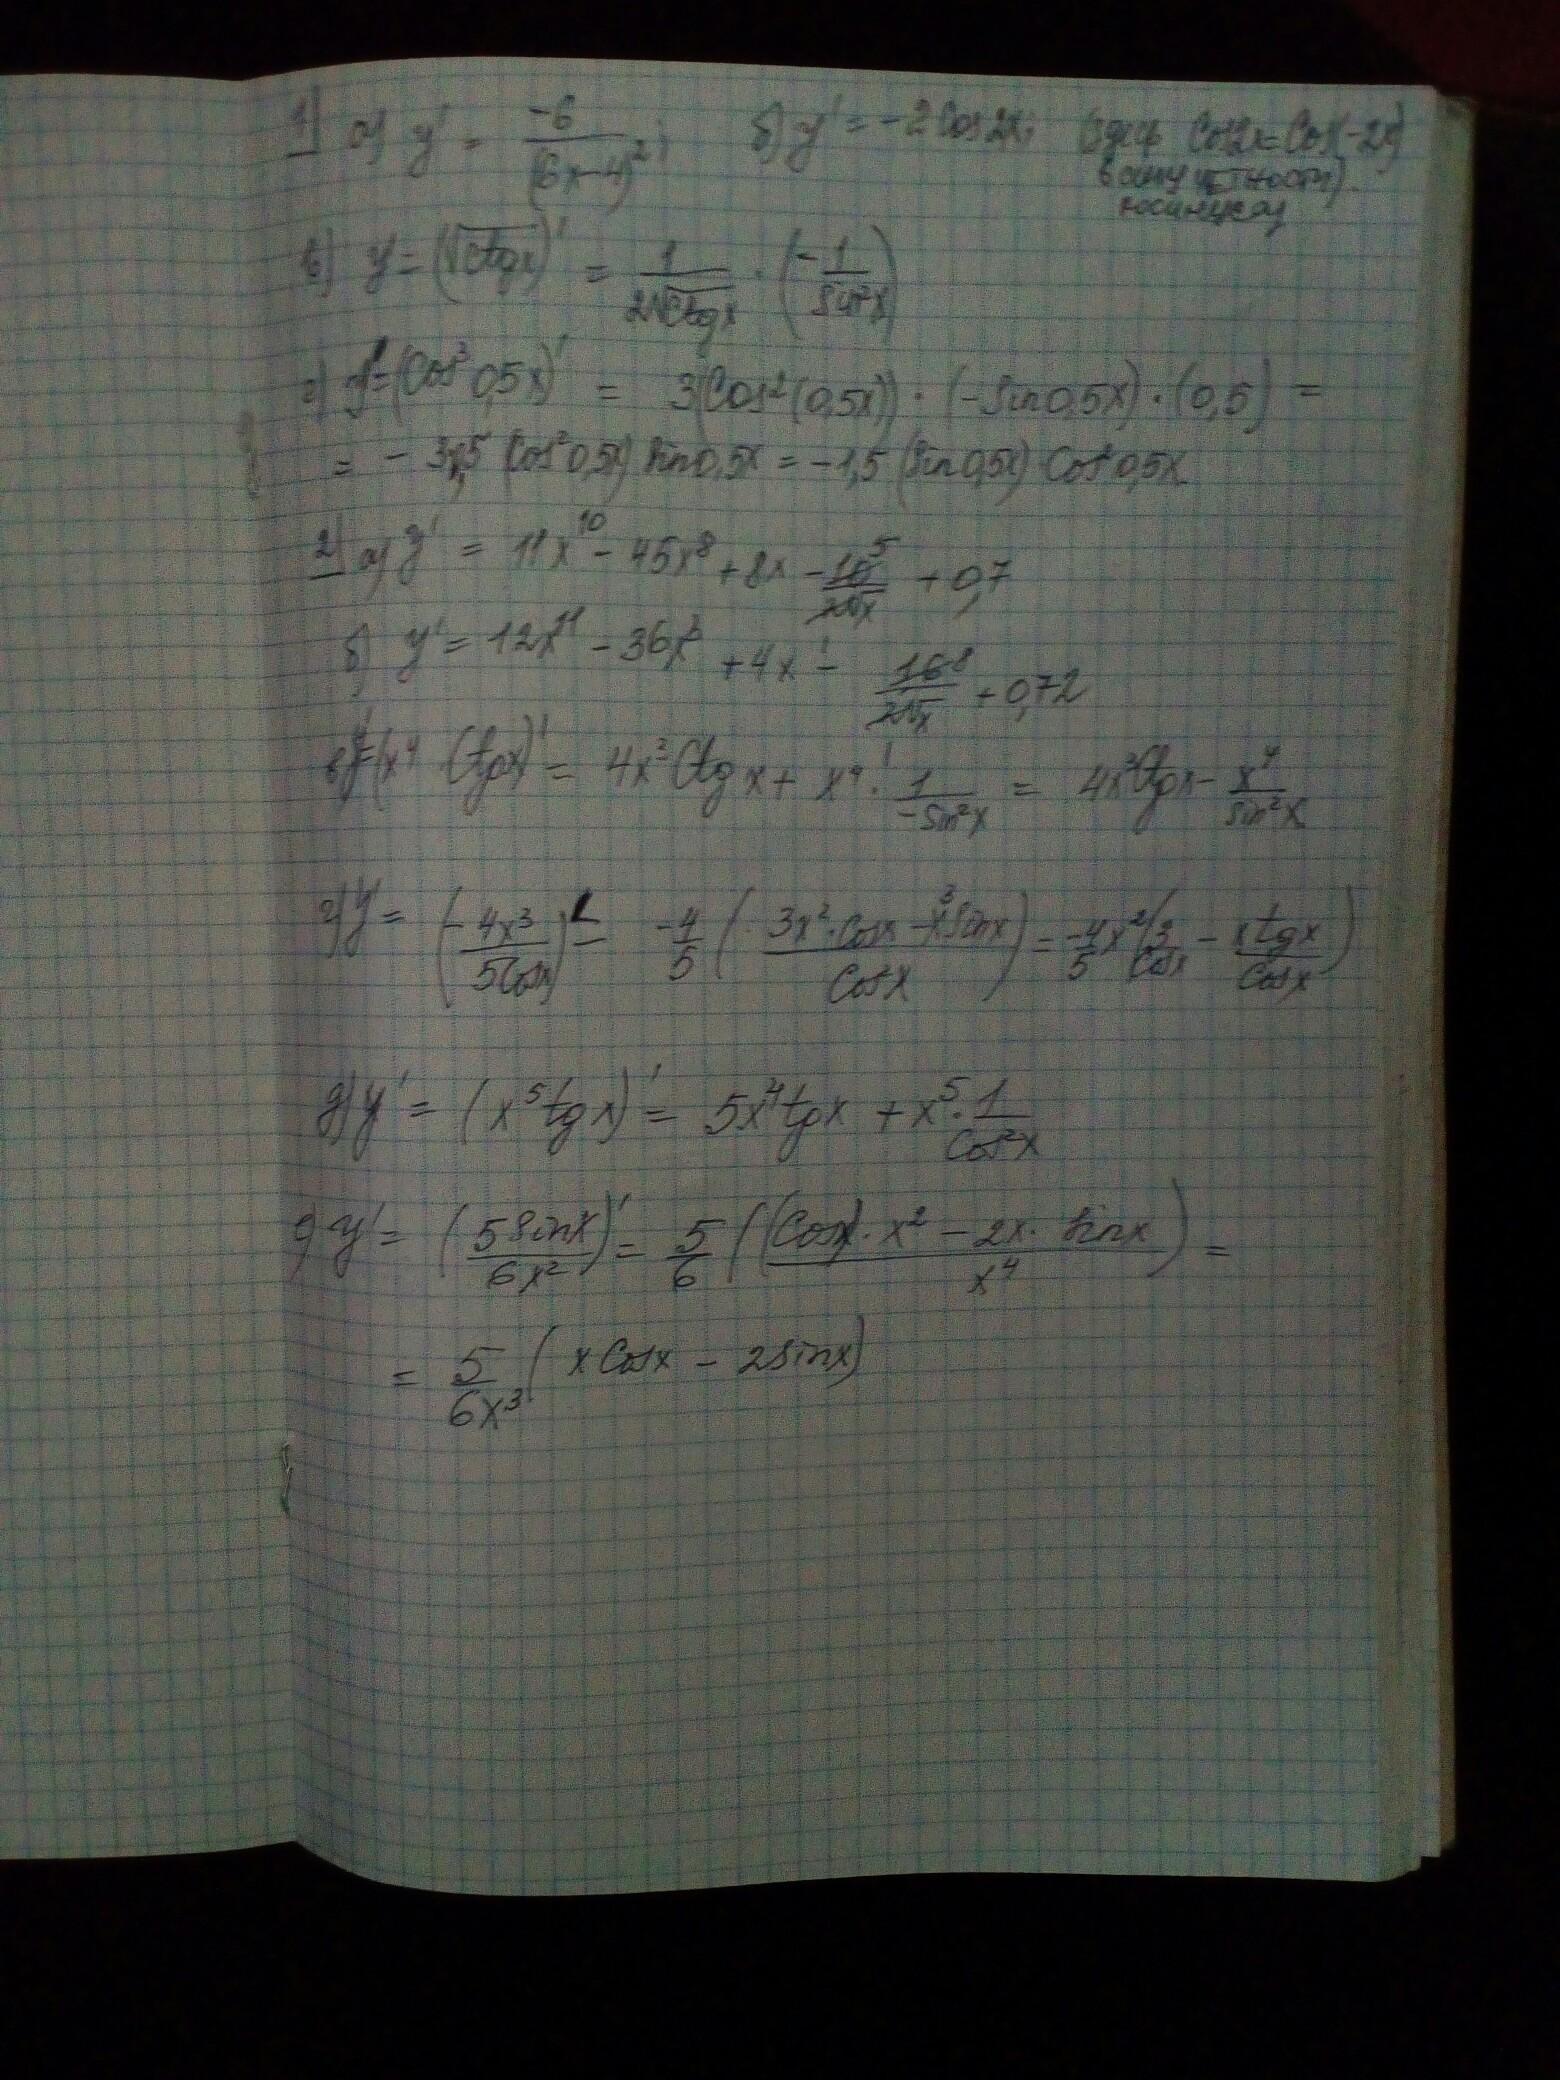 1) а) y' = -6/(6x-4)²; б) y' = -2Cos2x; (здесь Cos2x=Cos(-2x)
в силу четности)
косинуса
в) y' = (√ctgx)' = 1/(2√ctgx) · (-1/Sin²x)
г) y' = (Cos³0,5x)' = 3(Cos²(0,5x)) · (-Sin0,5x) · (0,5) =
= - 1,5 (Cos²0,5x) Sin0,5x = -1,5 (Sin0,5x) Cos²0,5x
2) а) y' = 11x¹⁰ - 45x⁸ + 8x - 5/√x + 0,7
б) y' = 12x¹¹ - 36x + 4x - 8/√x + 0,72
в) y' = (x⁴ Ctgx)' = 4x³Ctgx + x⁴ · 1/(-Sin²x) = 4x³Ctgx - x⁴/sin²x
г) y' = (-4x³/5Cosx)' = -4/5 ( (3x²·Cosx - x³Sinx)/Cos²x ) = -4/5 x² (3/Cosx - xtgx/Cosx)
д) y' = (x⁵tgx)' = 5x⁴tgx + x⁵ · 1/Cos²x
y' = (5Sinx/6x²)' = 5/6 ( ((Cosx)·x² - 2x·Sinx)/x⁴ ) =
= 5/6x³ (xCosx - 2Sinx)